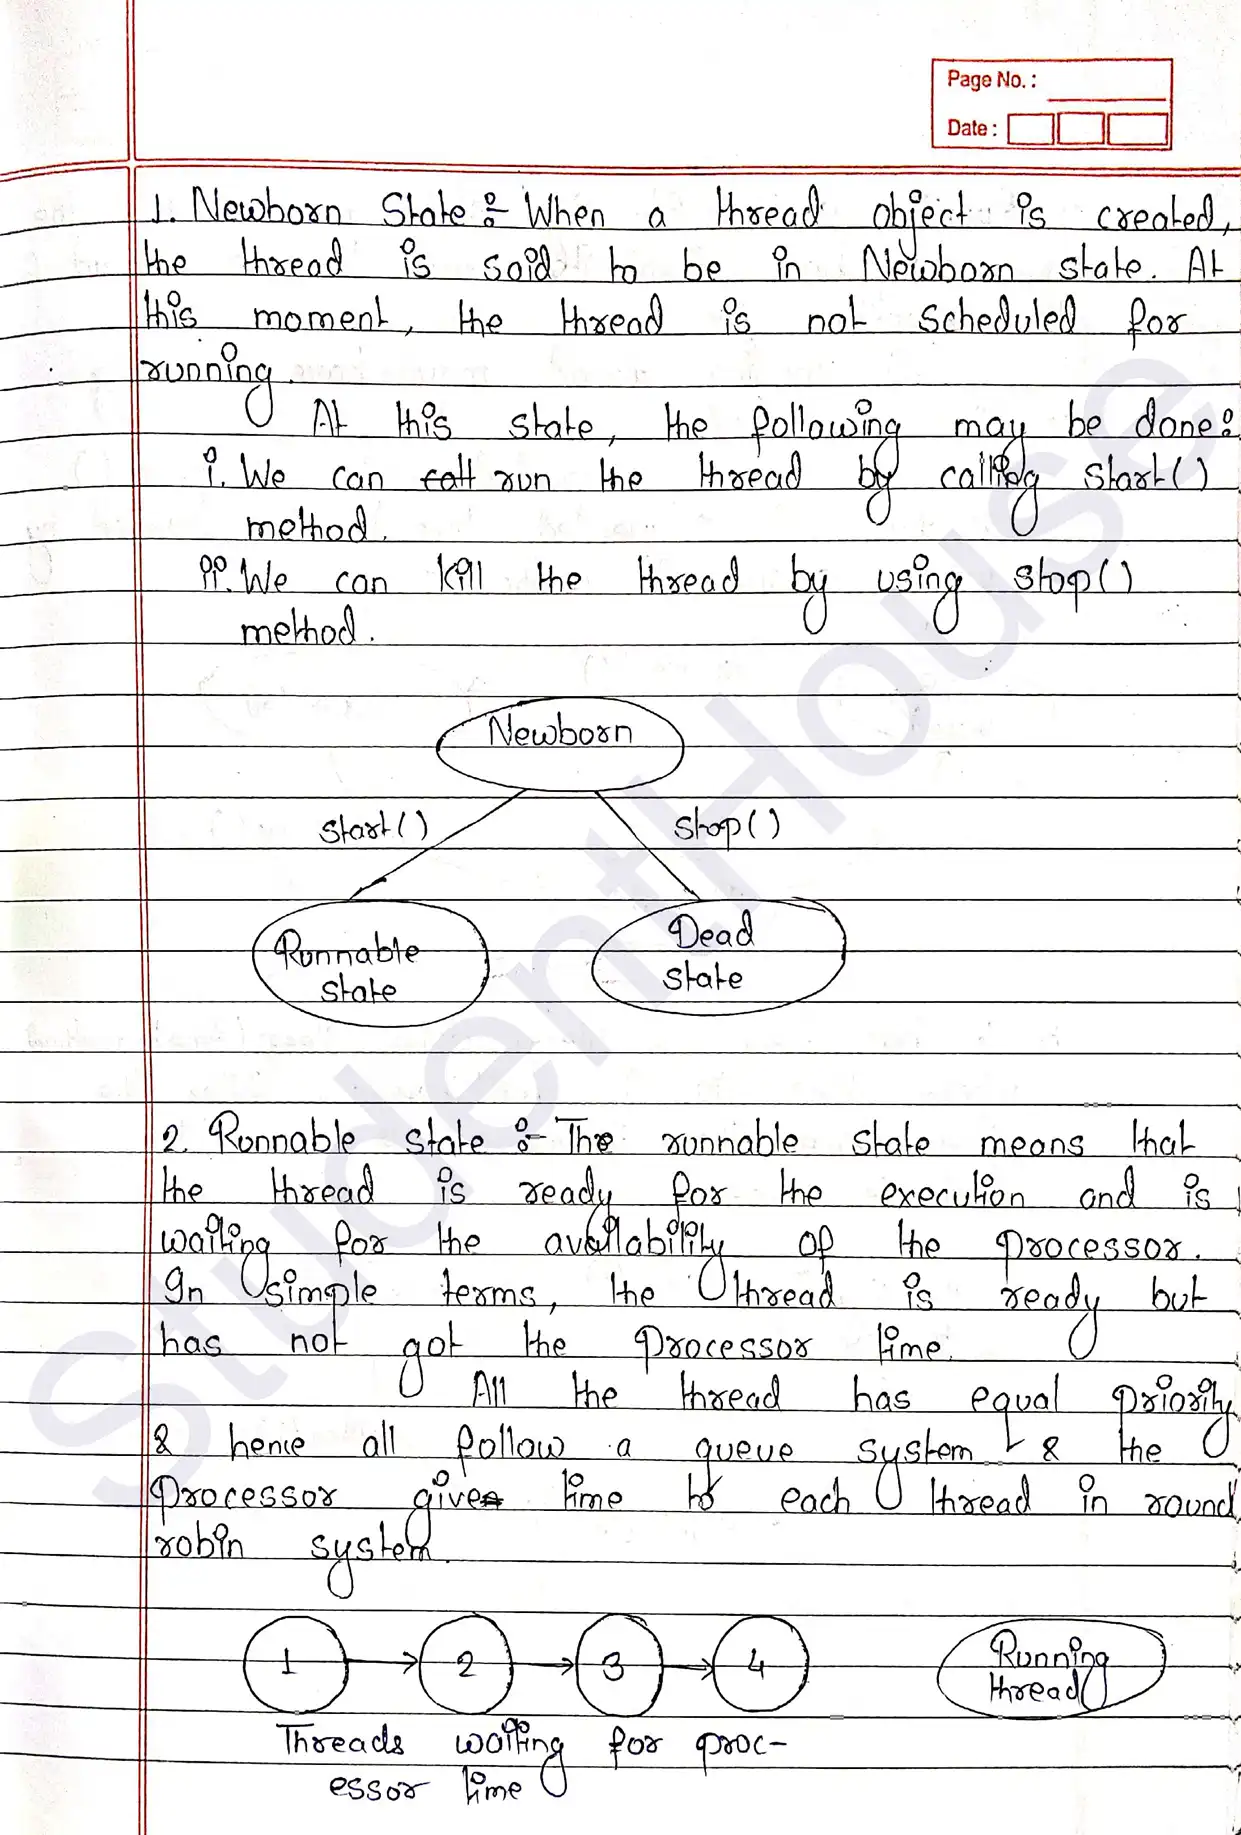 Page No. :
Date :
1. Newborn State :- When a thread object is created,
the thread is said to be in Newborn state. At
this moment, the thread is not scheduled for
running.
At this state, the following may be done:
i. We can call run the thread by calling start()
method.
ii. We can kill the thread by using stop()
method.
Newborn
start() stop()
Runnable Dead
state state
2. Runnable state :- The runnable state means that
the thread is ready for the execution and is
waiting for the availability of the processor.
In simple terms, the thread is ready but
has not got the processor time.
All the thread has equal priority
& hence all follow a queue system & the
processor gives time to each thread in round
robin system.
1 2 3 4 Running
thread
Threads waiting for proc-
essor time
StudentHouse